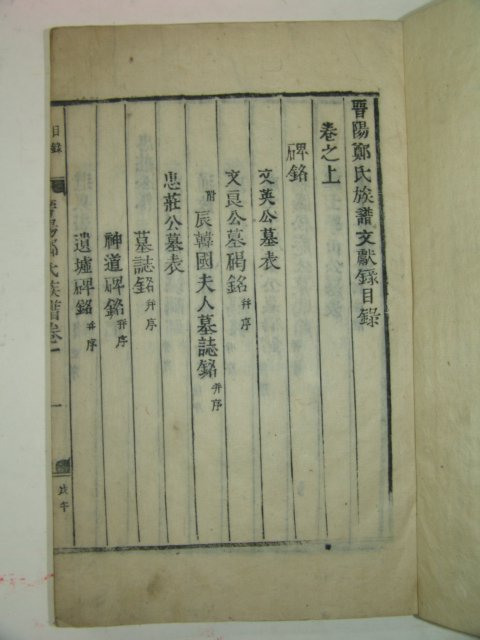 晋陽鄭氏族譜文獻錄目錄
卷之上
碑銘
文英公墓表
文良公墓碣銘 并序
附 辰韓國夫人墓誌銘 并序
忠莊公墓表
墓誌銘 并序
神道碑銘 并序
遺墟碑銘 并序
目錄
晋陽鄭氏族譜卷一
一
戊午